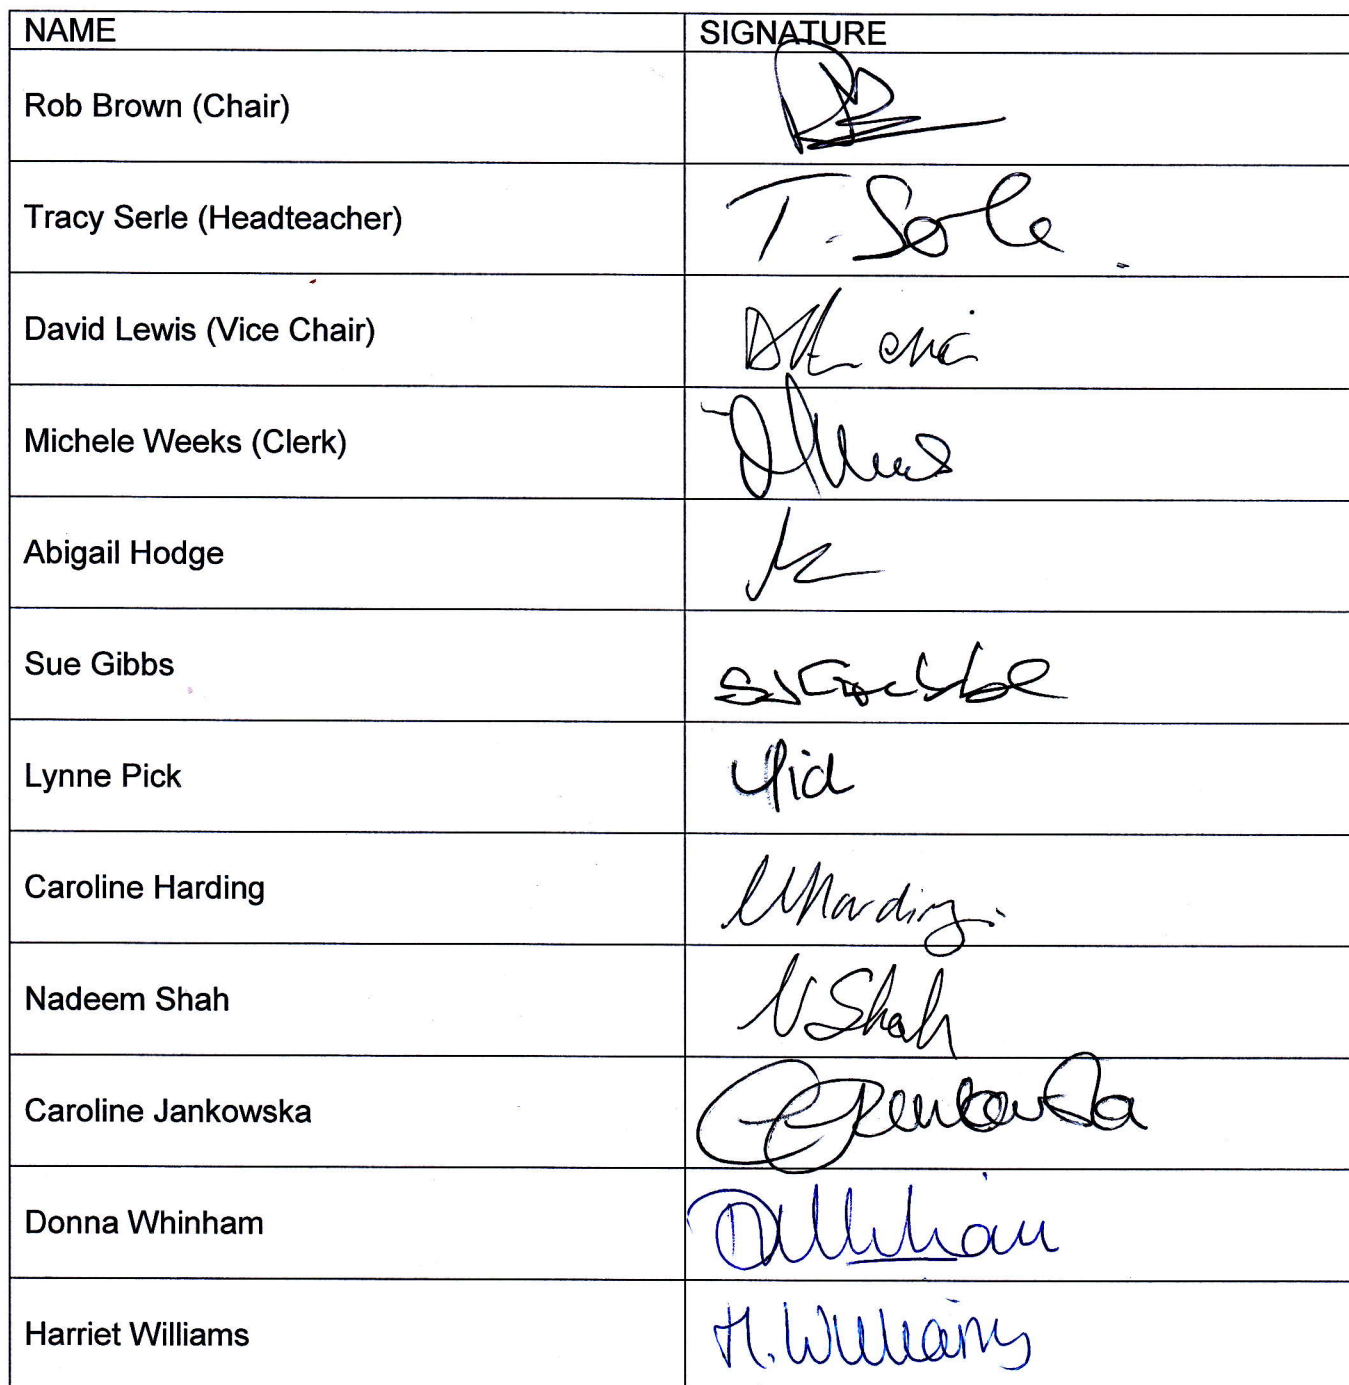 NAME SIGNATURE
Rob Brown (Chair)
Tracy Serle (Headteacher) T. Serle
David Lewis (Vice Chair)
Michele Weeks (Clerk)
Abigail Hodge
Sue Gibbs
Lynne Pick
Caroline Harding Harding.
Nadeem Shah N Shah
Caroline Jankowska
Donna Whinham
Harriet Williams H. Williams